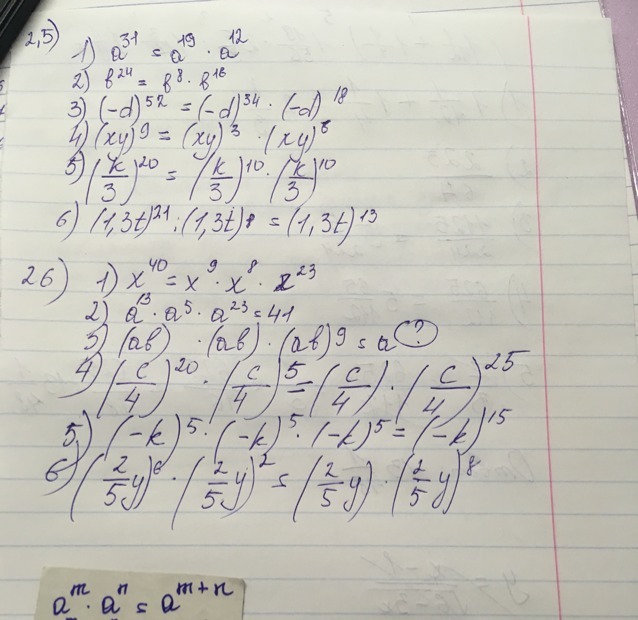 2,5)
1) a³¹ = a¹⁹ · a¹²
2) b²⁴ = b⁸ · b¹⁶
3) (-d)⁵² = (-d)³⁴ · (-d)¹⁸
4) (xy)⁹ = (xy)³ · (xy)⁶
5) (k/3)²⁰ = (k/3)¹⁰ · (k/3)¹⁰
6) (1,3t)²¹ : (1,3t)⁸ = (1,3t)¹³
26) 1) x⁴⁰ = x⁹ · x⁸ · x²³
2) a¹³ · a⁵ · a²³ = 41
3) (ab) · (ab) · (ab)⁹ = a(?)
4) (c/4)²⁰ · (c/4)⁵ = (c/4) · (c/4)²⁵
5) (-k)⁵ · (-k)⁵ · (-k)⁵ = (-k)¹⁵
6) (2/5y)⁶ · (2/5y)² = (2/5y) · (2/5y)⁸
aᵐ · aⁿ = aᵐ⁺ⁿ